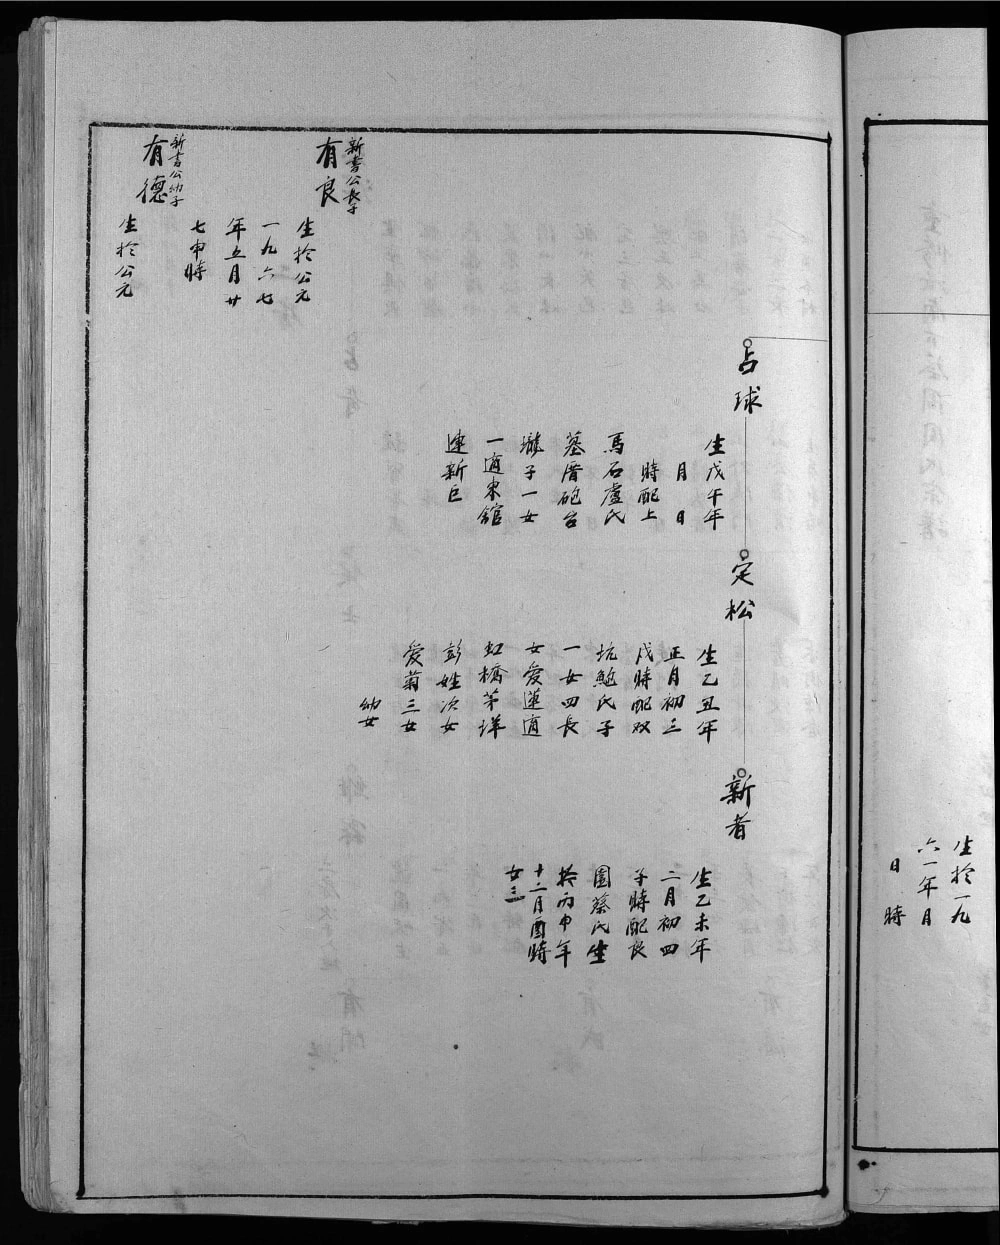 生於一九
六一年月
日 時
占球
生戊午年
月 日
時配上
馬石盧氏
墓厝砲台
瓏子一女
一適東舘
連新巨
定松
生乙丑年
正月初三
戌時配双
坑鮑氏子
一女四長
女愛蓮適
虹橋茅垟
彭姓次女
愛菊三女
幼女
新者
生乙未年
二月初四
子時配良
園蔡氏生
於丙申年
十二月酉時
女三
新書公長子
有良
生於公元
一九六七
年五月廿
七申時
新書公幼子
有德
生於公元